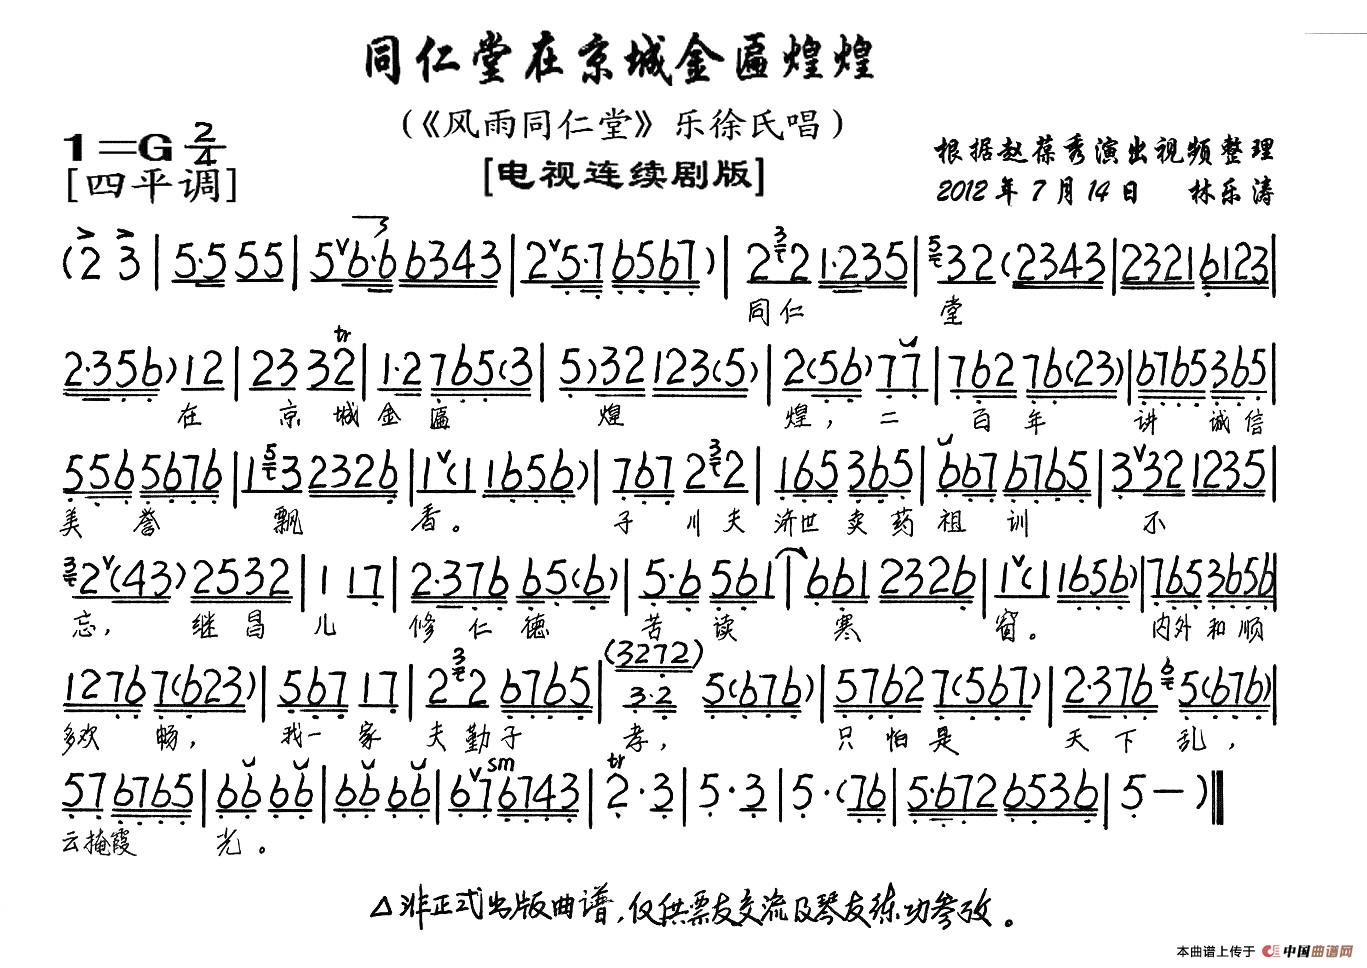 同仁堂在京城金匾煌煌
(《风雨同仁堂》乐徐氏唱)
1=G 2/4
[四平调]
[电视连续剧版]
根据赵葆秀演出视频整理
2012年7月14日 林乐涛
(2 3 | 5·5 55 | 5 6·6 6343 | 2 5·7 6567) | 2 3 2 1·235 | 5 32 (2343 | 2321 6123 |
同仁 堂
2·356) 12 | 23 32 tr | 1·2 765(3 | 5)32 123(5) | 2(56) 77 | 762 76(23) | 6765 365 |
在 京 城 金 匾 煌 煌, 二 百 年 讲 诚信
556 5676 | 1 5 3 2326 | 1(1 1656) | 767 2 3 2 | 165 365 | 667 6765 | 3 32 1235 |
美 誉 飘 香。 子 川 夫 济世 卖 药 祖 训 不
3 2(43) 2532 | 1 17 | 2·376 65(6) | 5·6 561 | 661 2326 | 1(1 1656) | 765 3656 |
忘, 继 昌 儿 修 仁 德 苦 读 寒 窗。 内外 和 顺
1276 7(623) | 567 17 | 2 3 2 6765 | (3272) 3·2 5(676) | 5762 7(567) | 2·376 6 5(676) |
多欢 畅, 我一 家 夫 勤 子 孝, 只 怕 是 天 下 乱,
57 6765 | 66 66 | 66 66 | 67 sm 6743 | tr 2·3 | 5·3 | 5·(76 | 5·672 6536 | 5 — )
云掩霞 光。
△非正式出版曲谱,仅供票友交流及琴友练功参考。
本曲谱上传于 中国曲谱网